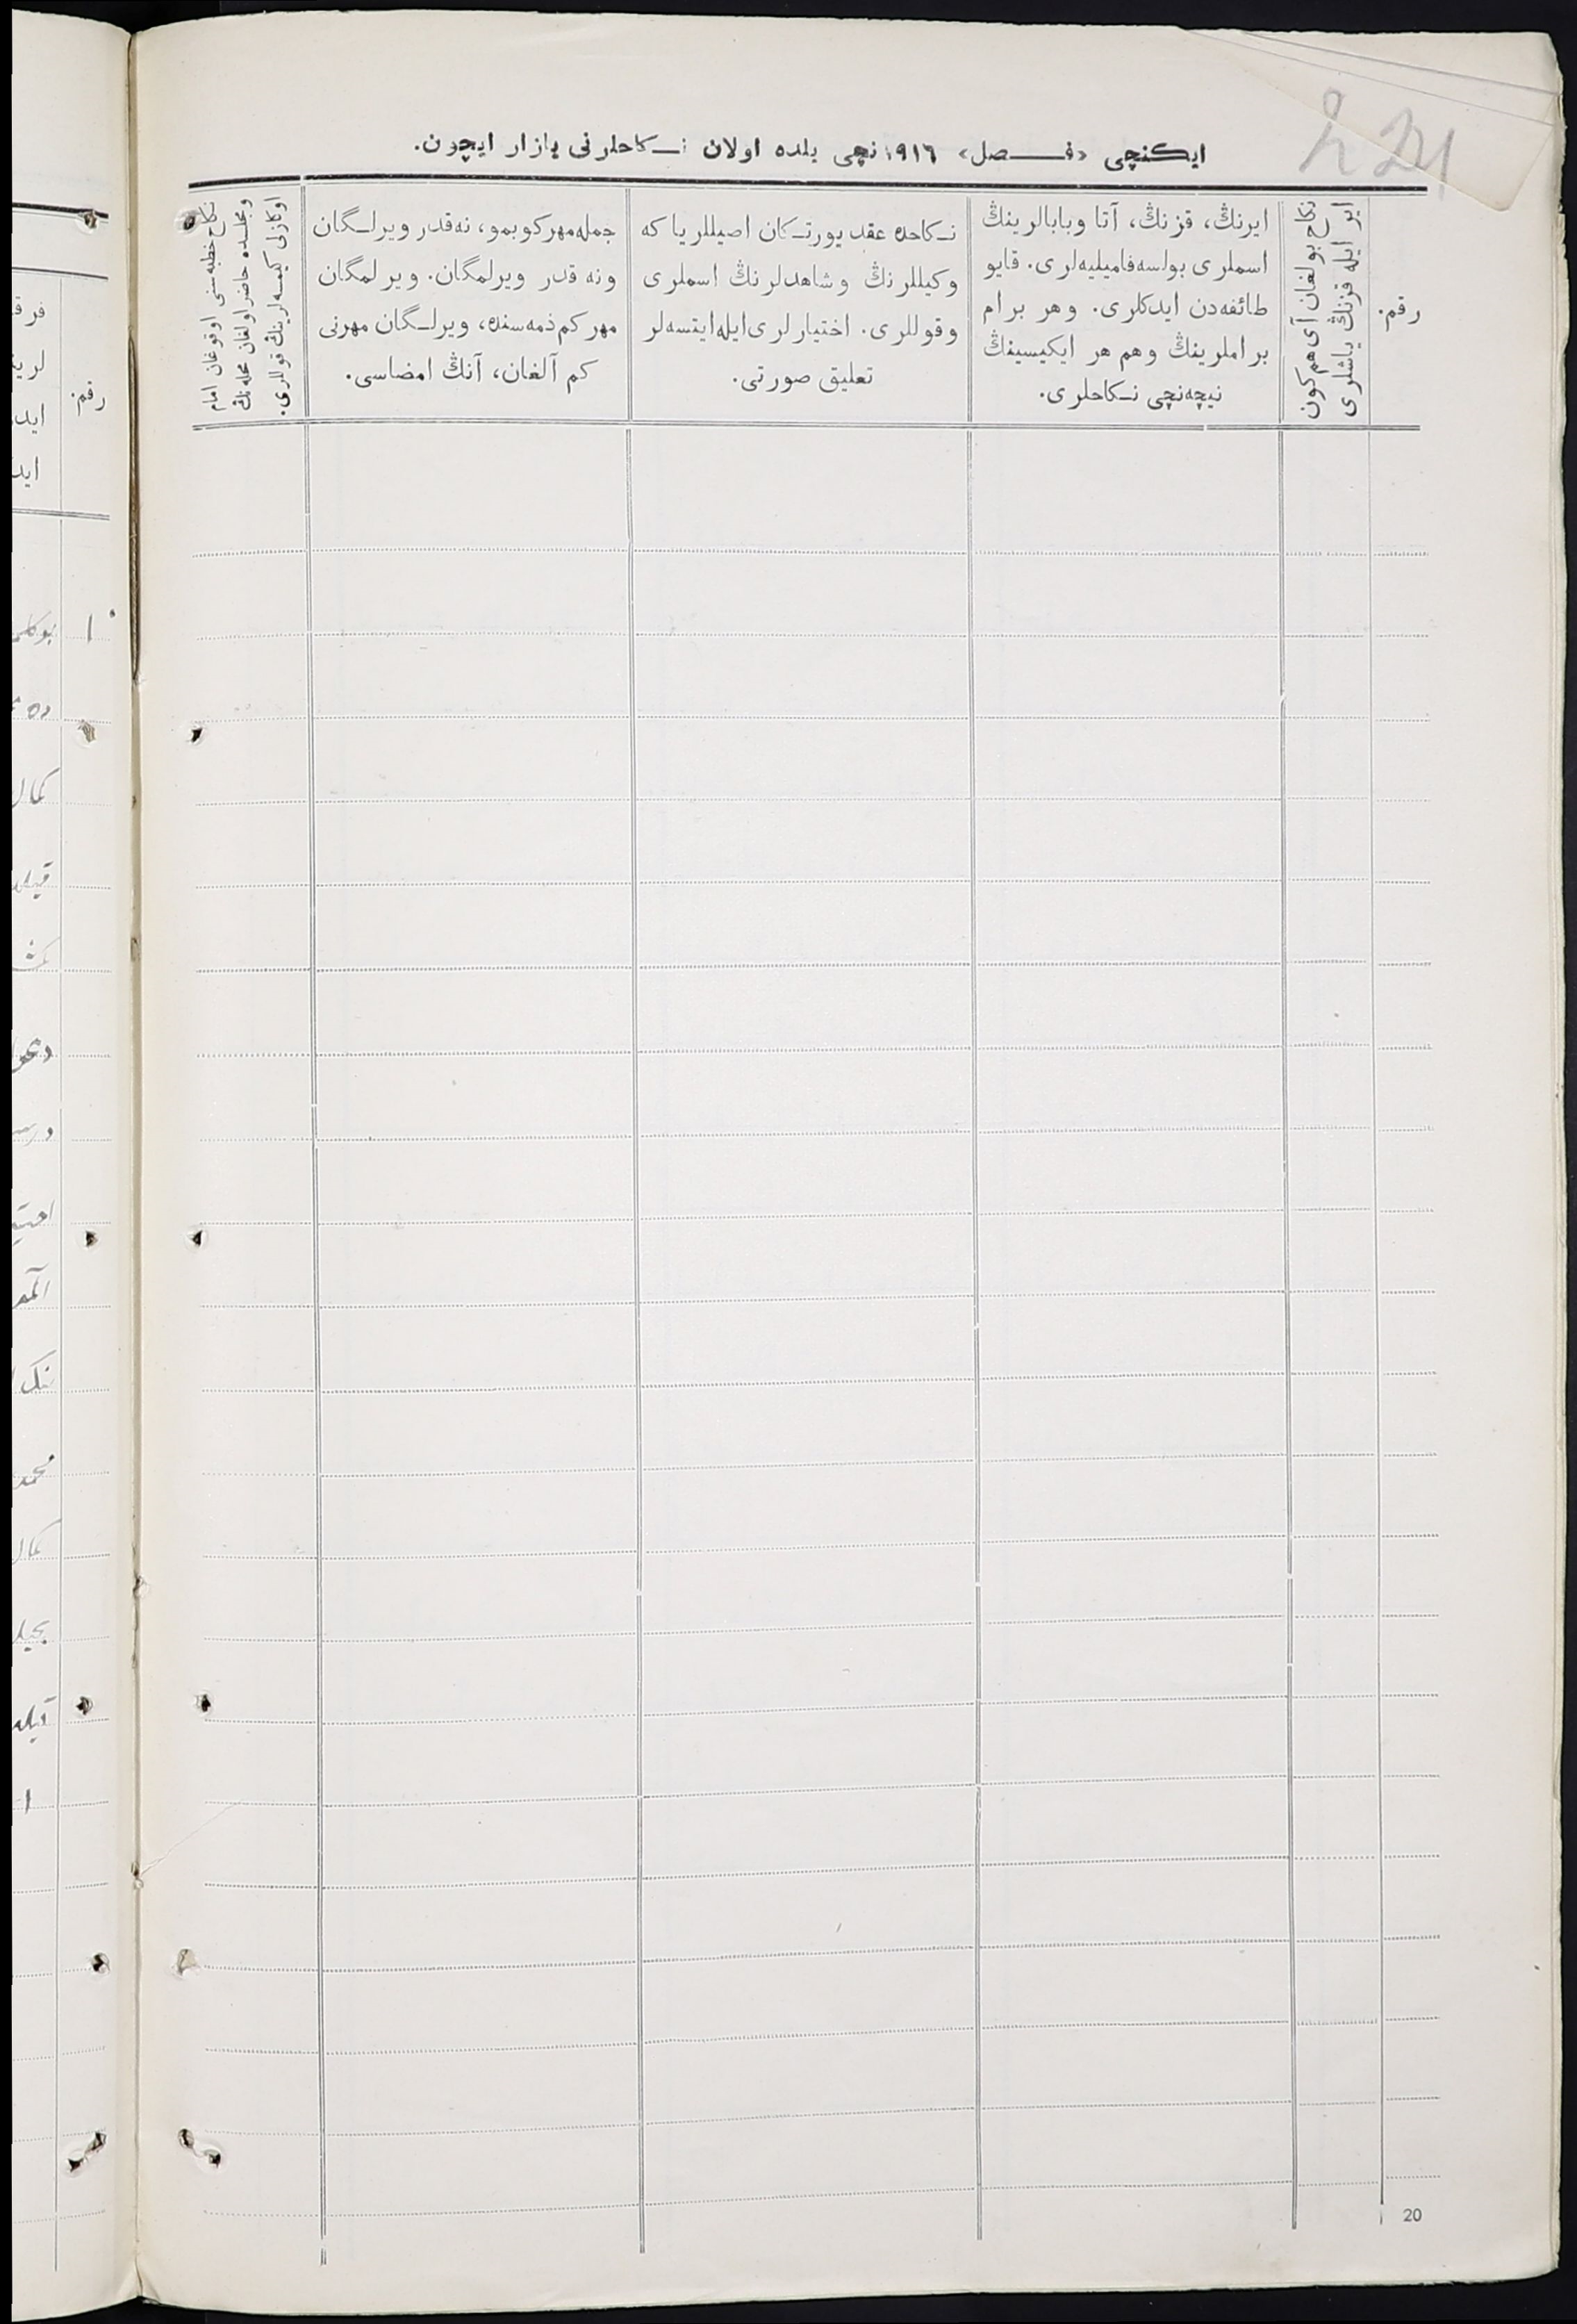 ایکنچی «فصل» ١٩١٦نچی یلده اولان نکاحلرنی یازار ایچون.
رقم.
نکاح بولغان آی هم کون
ایر ایله قزنڭ یاشلری
ایرنڭ، قزنڭ، آتا وبابالرینڭ
اسملری بولسه فامیلیه‌لری. قایو
طائفه‌دن ایدکلری. وهر برام
براملرینڭ وهم هر ایکیسینڭ
نیچه‌نچی نکاحلری.
نکاحده عقد یورتکان اصیللریا که
وکیللرنڭ وشاهدلرنڭ اسملری
وقوللری. اختیارلری‌ایله‌ایتسه‌لر
تعلیق صورتی.
جمله‌مهرکوبمو، نه‌قدر ویرلگان
ونه قدر ویرلمگان. ویرلمگان
مهر کم ذمه‌سنده، ویرلگان مهرنی
کم آلغان، آنڭ امضاسی.
نکاح خطبه‌سنی اوقوغان امام
ومجلسده حاضر اولغان محله‌نڭ
اوکازلی کیمسه‌لرینڭ قوللری.
20
رقم.